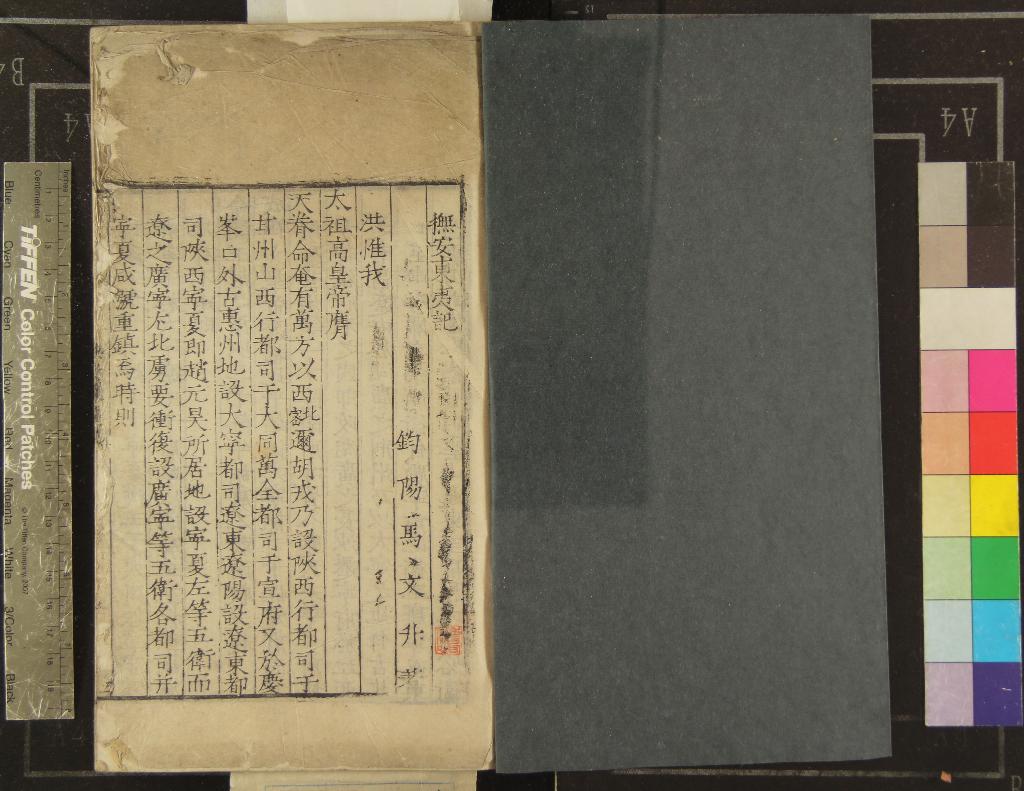 撫安東夷記
鈞陽馬文升著
洪惟我
太祖高皇帝膺
天眷命奄有萬方以西北密邇胡戎乃設陝西行都司于
甘州山西行都司于大同萬全都司于宣府又於慶
峯口外古惠州地設大寧都司遼東遼陽設遼東都
司陝西寧夏即趙元昊所居地設寧夏左等五衛而
遼之廣寧尤北虜要衝復設廣寧等五衛各都司并
寧夏咸號重鎮焉時則
A4
A4
B4
Inches
Centimetres
TIFFEN Color Control Patches
© The Tiffen Company, 2007
Blue
Cyan
Green
Yellow
Red
Magenta
White
3/Color
Black